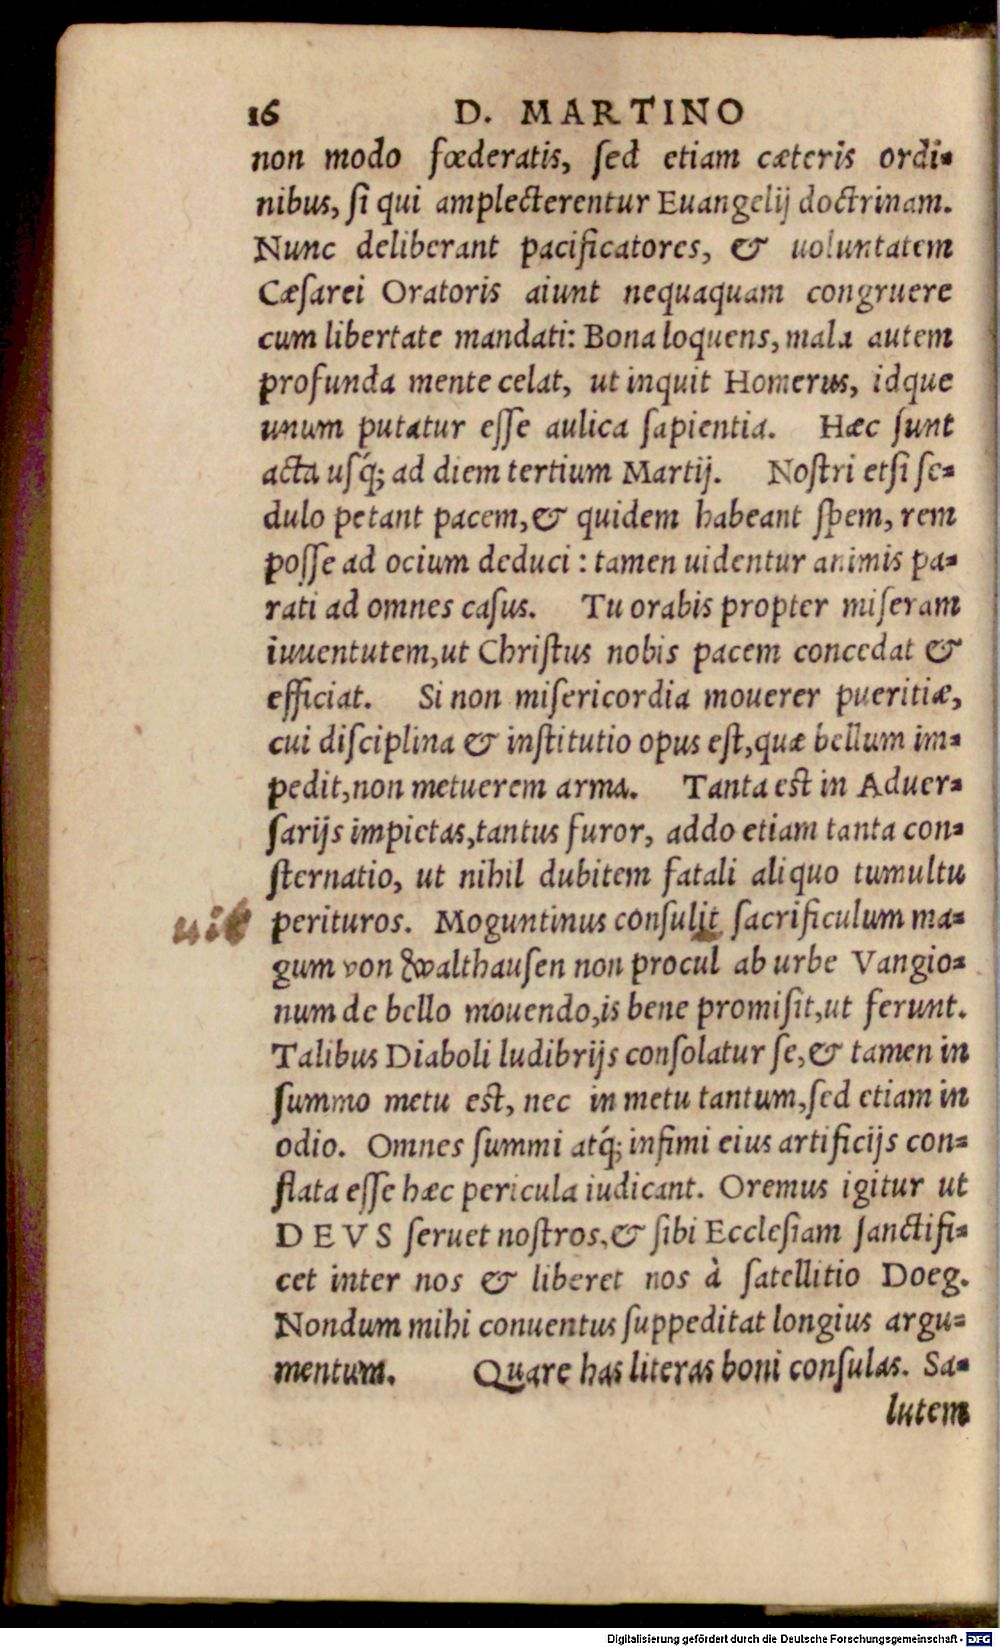 16 D. MARTINO
non modo fœderatis, ſed etiam cæteris ordi-
nibus, ſi qui amplecterentur Euangelij doctrinam.
Nunc deliberant pacificatores, & uoluntatem
Cæſarei Oratoris aiunt nequaquam congruere
cum libertate mandati: Bona loquens, mala autem
profunda mente celat, ut inquit Homerus, idque
unum putatur eſſe aulica ſapientia. Hæc ſunt
acta uſq́; ad diem tertium Martij. Noſtri etſi ſe-
dulo petant pacem, & quidem habeant ſpem, rem
poſſe ad ocium deduci: tamen uidentur animis pa-
rati ad omnes caſus. Tu orabis propter miſeram
iuuentutem, ut Chriſtus nobis pacem concedat &
efficiat. Si non miſericordia mouerer pueritiæ,
cui diſciplina & inſtitutio opus eſt, quæ bellum im-
pedit, non metuerem arma. Tanta eſt in Aduer-
ſarijs impietas, tantus furor, addo etiam tanta con-
ſternatio, ut nihil dubitem fatali aliquo tumultu
perituros. Moguntinus conſulit ſacrificulum ma-
uit
gum von Walthauſen non procul ab urbe Vangio-
num de bello mouendo, is bene promiſit, ut ferunt.
Talibus Diaboli ludibrijs conſolatur ſe, & tamen in
ſummo metu eſt, nec in metu tantum, ſed etiam in
odio. Omnes ſummi atq́; infimi eius artificijs con-
flata eſſe hæc pericula iudicant. Oremus igitur ut
DEVS ſeruet noſtros, & ſibi Eccleſiam ſanctifi-
cet inter nos & liberet nos à ſatellitio Doeg.
Nondum mihi conuentus ſuppeditat longius argu-
mentum. Quare has literas boni conſulas. Sa-
lutem
Digitalisierung gefördert durch die Deutsche Forschungsgemeinschaft - DFG